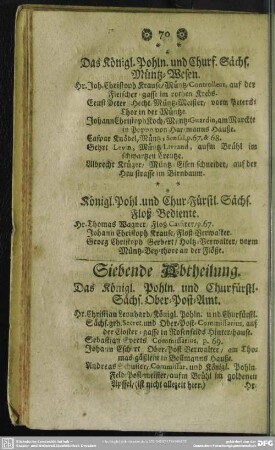 70
Das Königl. Pohln. und Churf. Sächs.
Müntz-Wesen.
Hr. Joh. Christoph Krause, Müntz-Controlleur, auf der
Fleischer-gasse im rothen Krebs.
Ernst Peter Hecht, Müntz-Meister, vorm Peters-
Thor in der Müntze.
Johann Christoph Koch, Müntz-Guardin, am Marckte
in Hausse.
Caspar Knöbel, p. 67. & 68.
Levin, Müntz-Lieferand, aufm Brühl im
schwartzen Creutze.
Albrecht Krüger, Müntz-Eisenschneider, auf der
Heustrasse im Birnbaum.
Königl. Pohl. und Chur-Fürstl. Sächs.
Floß-Bediente.
Hr. Thomas Wagner, Floß-Cassirer, p. 67.
Johann Christoph Krause, Floß-Verwalter.
Georg Christoph Gerbert, Holtz-Verwalter, vorm
Müntz-Bey-thore an der Flösse.
Siebende Abtheilung.
Das Königl. Pohln. und Churfürstl.
Sächs. Ober-Post-Amt.
Hr. Christian Leonhard, Königl. Pohln. und Churfürstl.
Sächs. geh. Secret. und Ober-Post-Commissarius, auf
der Closter-gasse in Hinterhause.
Sebastian Commissarius, p. 69.
Johann Eschert, Ober-Post-Verwalter, am Tho-
mas gäßlein in Bellmanns Hausse.
Andreas Schuster, Commissar. und Königl. Pohln.
Feld-Postmeister, aufm Brühl im goldenen
Apffel, (ist nicht allezeit hier.)
Hr.